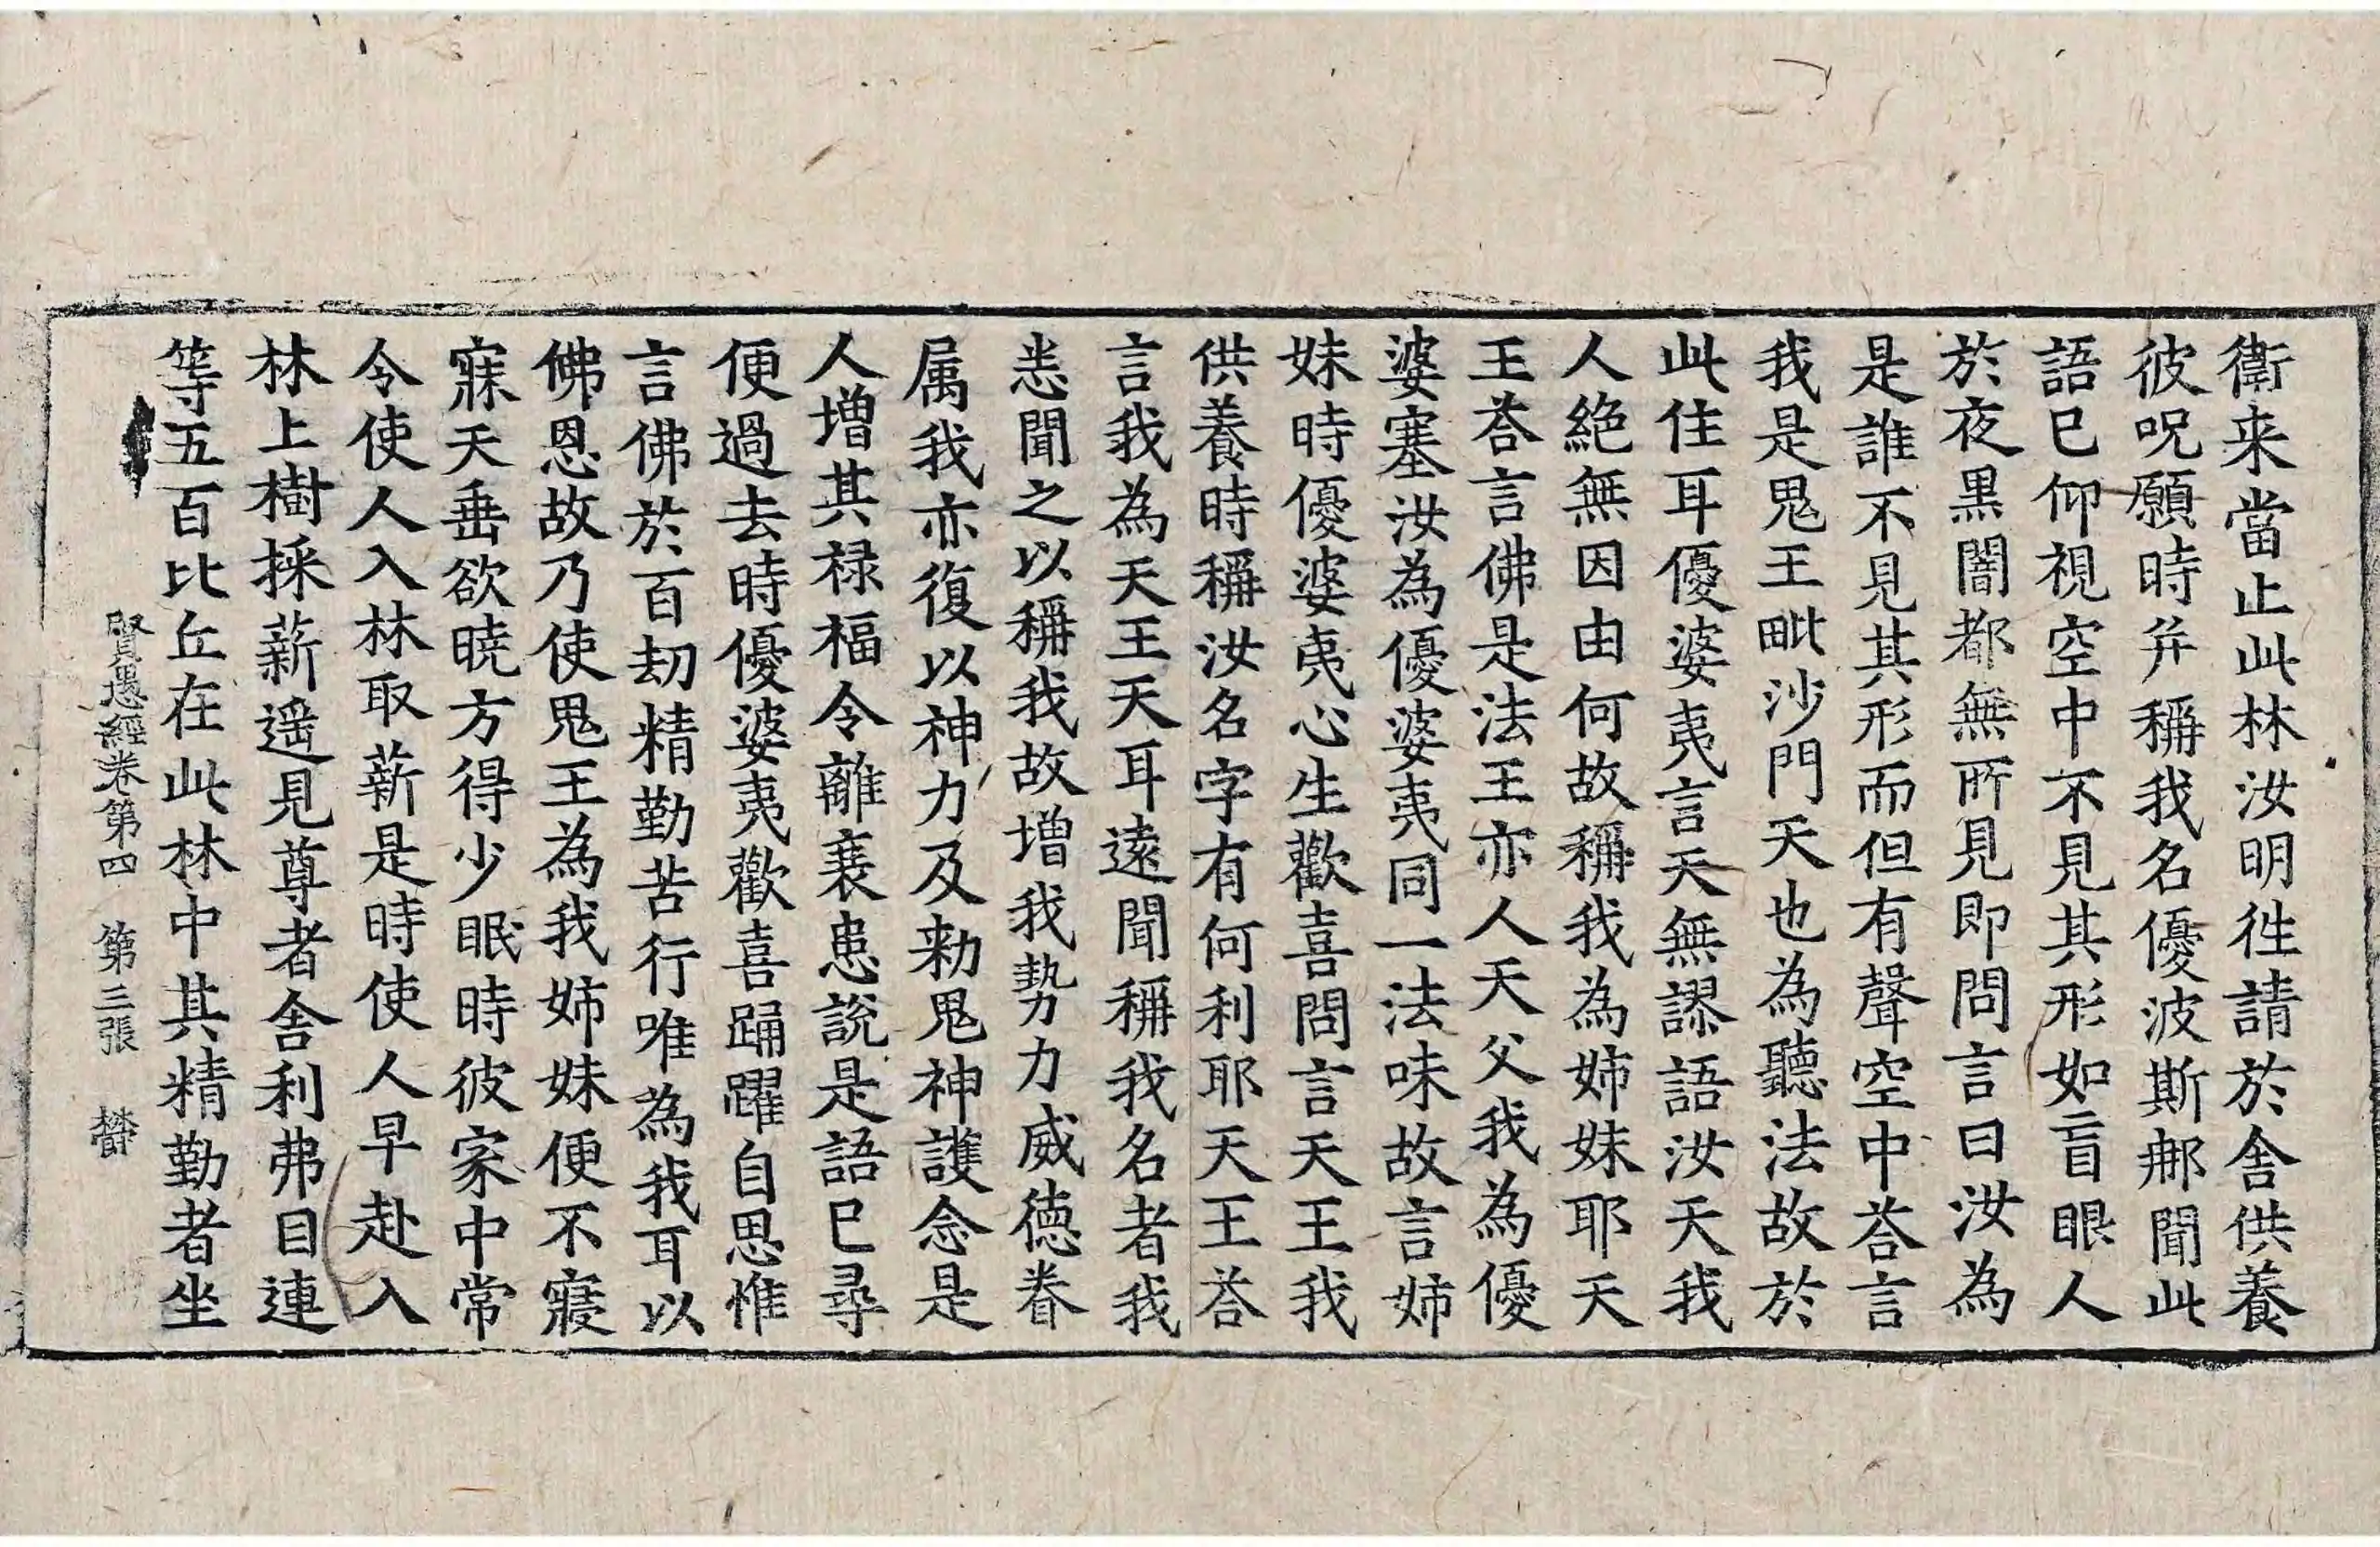 衛来當止此林汝明徃請於舎供養
彼呪願時并稱我名優波斯𨚗聞此
語已仰視空中不見其形如盲眼人
於夜黒闇都無所見即問言曰汝為
是誰不見其形而但有聲空中荅言
我是鬼王毗沙門天也為聽法故於
此住耳優婆夷言天無謬語汝天我
人絶無因由何故稱我為姉妹耶天
王荅言佛是法王亦人天父我為優
婆塞汝為優婆夷同一法味故言姉
妹時優婆夷心生歡喜問言天王我
供養時稱汝名字有何利耶天王荅
言我為天王天耳遠聞稱我名者我
悉聞之以稱我故增我勢力威德眷
属我亦復以神力及勑鬼神護念是
人增其禄福令離衰患說是語已尋
便過去時優婆夷歡喜踊躍自思惟
言佛於百劫精勤苦行唯為我耳以
佛恩故乃使鬼王為我姉妹便不寢
寐天垂欲曉方得少眠時彼家中常
令使人入林取薪是時使人早赴入
林上樹採薪遥見尊者舎利弗目連
等五百比丘在此林中其精勤者坐
賢愚經卷第四　第三張